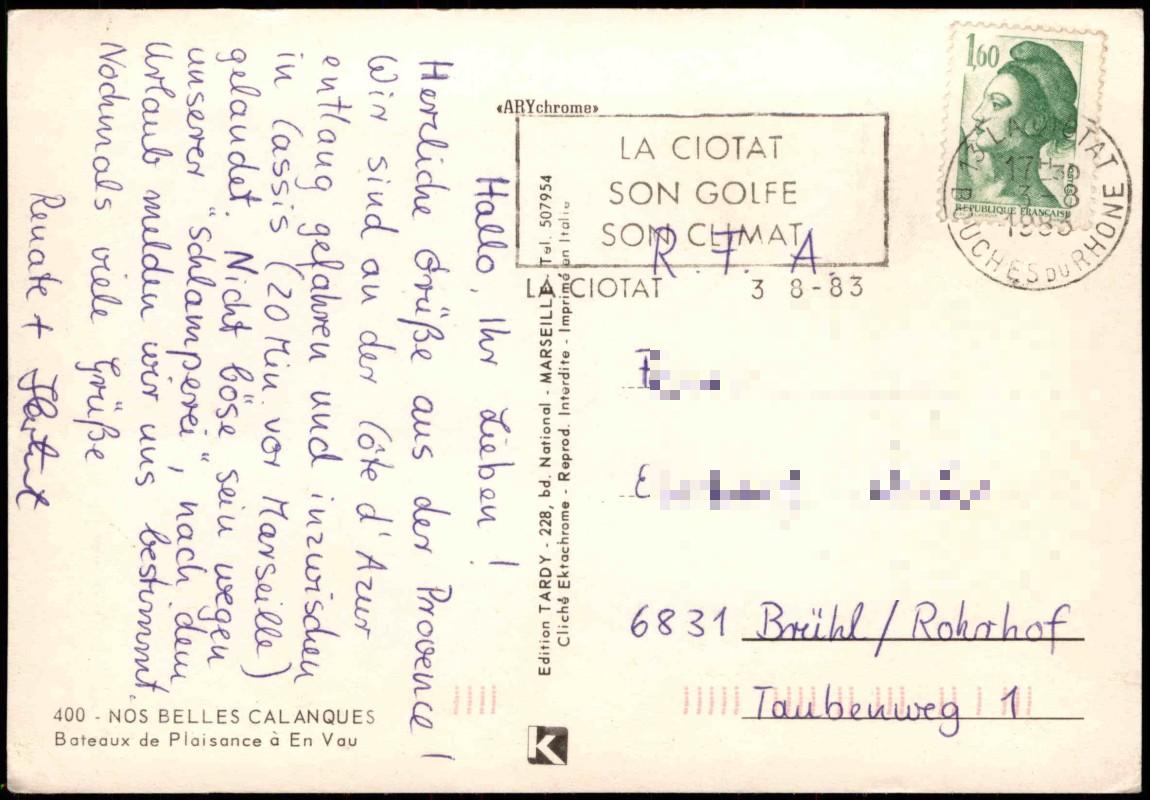 Hallo, Ihr Lieben!
Herzliche Grüße aus der Provence!
Wir sind an der Côte d'Azur
entlang gefahren und inzwischen
in Cassis (20 Min. vor Marseille)
gelandet. Nicht böse sein wegen
unserer "Schlamperei", nach dem
Urlaub melden wir uns bestimmt.
Nochmals viele Grüße
Renate +
400 - NOS BELLES CALANQUES
Bateaux de Plaisance à En Vau
«ARYchrome»
Edition TARDY - 228, bd. National - MARSEILLE - Tél. 507954
Cliché Ektachrome - Reprod. Interdite - Imprimé en Italie
K
LA CIOTAT
SON GOLFE
SON CLIMAT
LA CIOTAT 3 8-83
1,60
REPUBLIQUE FRANCAISE
13 LA CIOTAT
17H30
3 8
1983
BOUCHES DU RHONE
R. F. A.
6831 Brühl/Rohrhof
Taubenweg 1